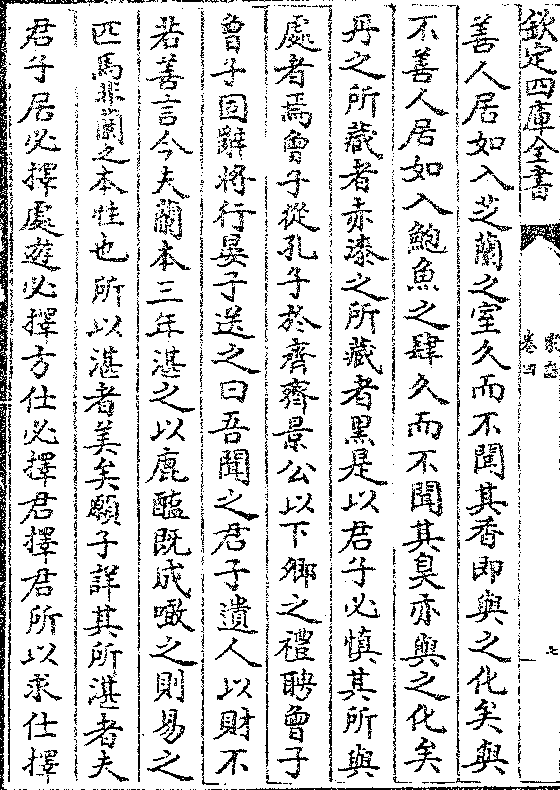 欽定四庫全書
卷四
七
善人居如入芝蘭之室久而不聞其香即與之化矣與
不善人居如入鮑魚之肆久而不聞其臭亦與之化矣
丹之所藏者赤漆之所藏者黑是以君子必慎其所與
處者焉曾子從孔子於齊齊景公以下卿之禮聘曾子
曾子固辭將行晏子送之曰吾聞之君子遺人以財不
若善言今夫蘭本三年湛之以鹿醢既成噉之則易之
匹馬非蘭之本性也所以湛者美矣願子詳其所湛者夫
君子居必擇處遊必擇方仕必擇君擇君所以求仕擇